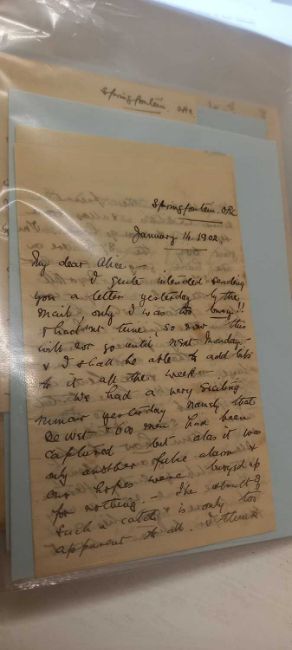 Springfontein. ORC
Springfontein. ORC
January 14. 1902.
My dear Alice —
I quite intended sending
you a letter yesterday by the
mail, only I was too busy!!
& had no time, so now this
will not go until next Monday
& I shall be able to add bits
to it all the week.
We had a very exciting
rumour yesterday namely that
De Wet & 600 men had been
captured but alas it was
only another false alarm &
our hopes were buoyed up
for nothing. The
such a catch is only too
apparent to all. I think